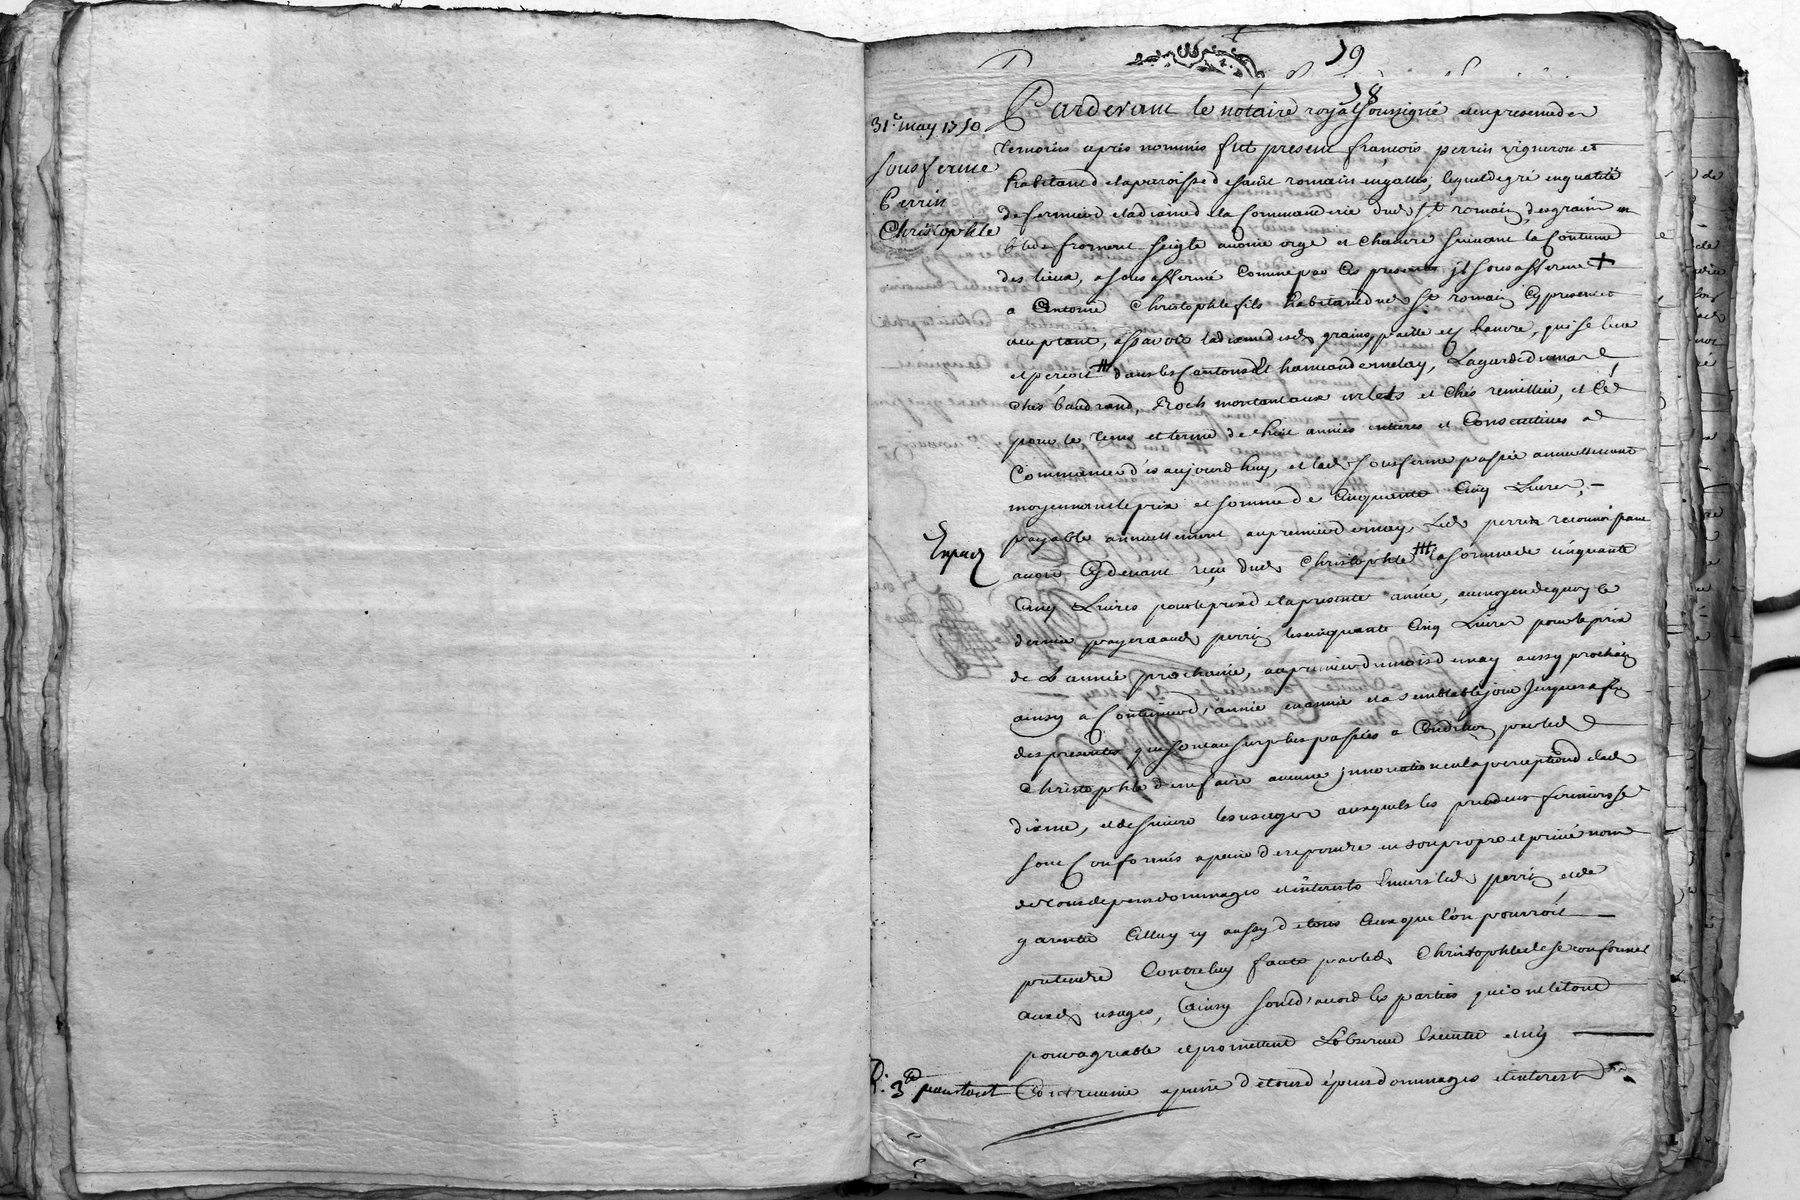 79
78
31e may 1750
sousferme
Perrin
Christophle
Pardevant le notaire royal soussigné et en presence des
temoins apres nommés fut present françois perrin vigneron et
habitant de la paroisse de saint romain en gallet, lequel de gré en qualité
de fermier de la dixme de la Commanderie dud st romain, des grains en
bled froment seigle avoine orge et chanvre suivant la Coutume
des lieux, a sousaffermé comme par ces presentes jl sousafferme +
a Antoine Christophle fils habitant dud st romain cy present et
acceptant, assavoir la dixme desd grains, paille et chanvre, qui se leve
et perçoit # dans les Cantons et hameau de
chés baudrand, Roch montant aux et chés remillieu, et ce
pour le tems et terme de huit années entieres et Consecutives a
Commencer d'es aujourd'huy, et lad sousferme passée annuellement
moyennant le prix et somme de Cinquante Cinq Livres, -
payable annuellement au premier de may, Led perrin reconnoissant
avoir cy devant reçu dud Christophle ## la somme de cinquante
Cinq Livres pour le prix de la presente année, au moyen de quoy ce
dernier payera aud perrin les cinquante Cinq Livres pour le prix
de L'année prochaine, au premier du mois de may aussy prochain
ainsy a Continuer d'année en année et a semblable jour jusques a fin
des presentes qui sont au surplus passées a Condition par led
Christophle de ne faire aucune jnnovation en la perception de lad
dixme, et de suivre les usages auxquels les precedens fermiers se
sont Conformés a peine de repondre en son propre et privé nom
de tous depens dommages et interests envers led perrin et de
garentir celluy cy aussy de tous Ceux que l'on pourroit
pretendre Contre luy faute par led Christophle de se conformer
auxd usages, Ainsy sont d'accord les parties qui ont le tout
pour agreable et promettent L'observer executer et n'y
Contrevenir a peine de tous d épens dommages et interests
R: 3 partout